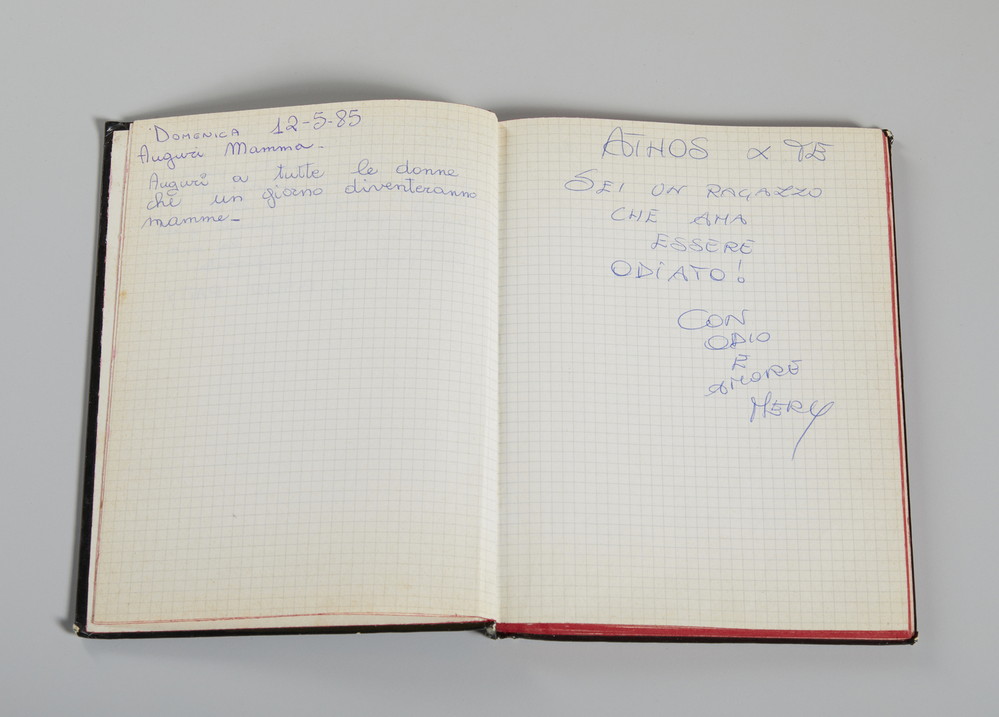 Domenica 12-5-85
Auguri Mamma-
Auguri a tutte le donne
che un giorno diventeranno
mamme-
ATHOS X TE
SEI UN RAGAZZO
CHE AMA
ESSERE
ODIATO!
CON
ODIO
E
AMORE
MERY